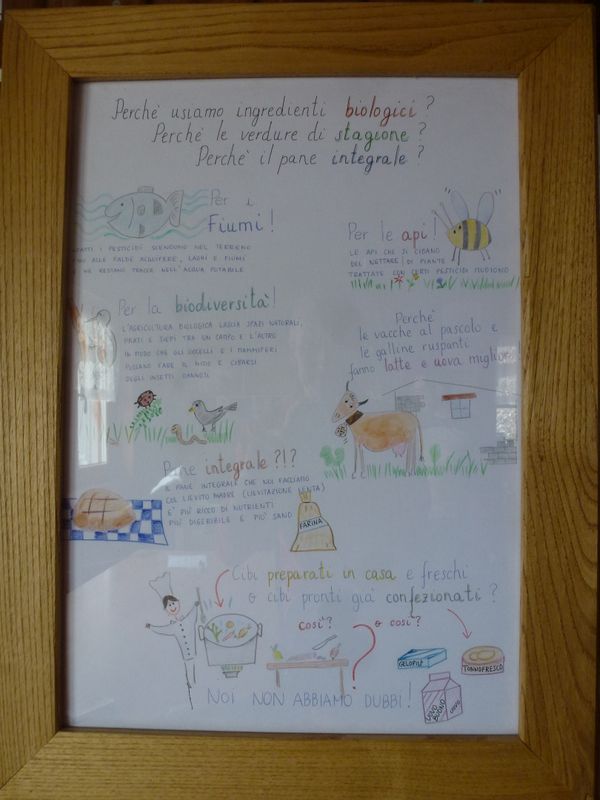 Perchè usiamo ingredienti biologici?
Perchè le verdure di stagione?
Perchè il pane integrale?
Per i
Fiumi!
INFATTI I PESTICIDI SCENDONO NEL TERRENO
FINO ALLE FALDE ACQUIFERE, LAGHI E FIUMI
E NE RESTANO TRACCE NELL'ACQUA POTABILE
Per le api!
LE API CHE SI CIBANO
DEL NETTARE DI PIANTE
TRATTATE CON CERTI PESTICIDI MUOIONO
Per la biodiversità!
L'AGRICOLTURA BIOLOGICA LASCIA SPAZI NATURALI,
PRATI E SIEPI TRA UN CAMPO E L'ALTRO
IN MODO CHE GLI UCCELLI E I MAMMIFERI
POSSANO FARE IL NIDO E CIBARSI
DEGLI INSETTI DANNOSI
Perchè
le vacche al pascolo e
le galline ruspanti
fanno latte e uova migliori
Pane integrale?!?
IL PANE INTEGRALE CHE NOI FACCIAMO
COL LIEVITO MADRE (LIEVITAZIONE LENTA)
E' PIÙ RICCO DI NUTRIENTI
PIÙ DIGERIBILE E PIÙ SANO
FARINA
Cibi preparati in casa e freschi
o cibi pronti già confezionati?
così?
o così?
GELOPIU'
TONNOFRESCO
UOVO
BUONO
NOI NON ABBIAMO DUBBI!